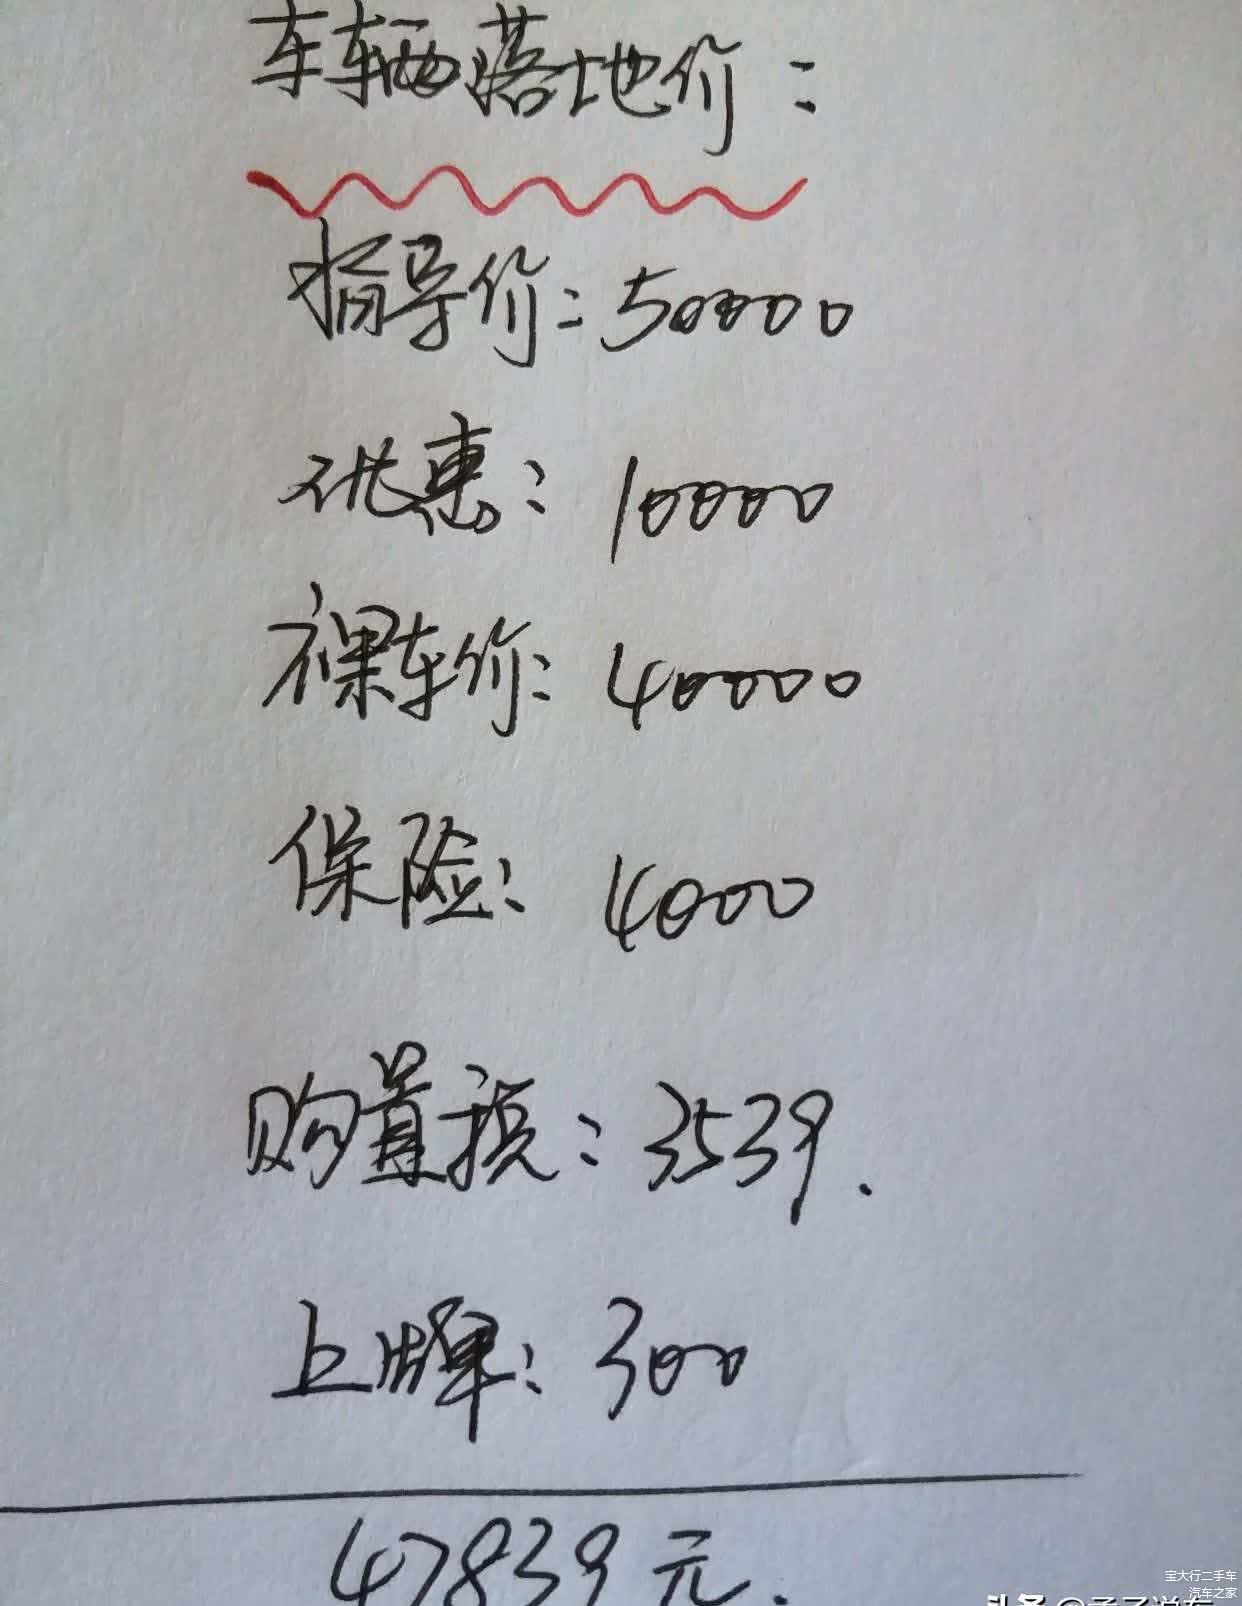 车辆落地价:
指导价:50000
优惠:10000
裸车价:40000
保险:4000
购置税:3539.
上牌:300
47839元.
宝大行二手车
汽车之家
头条